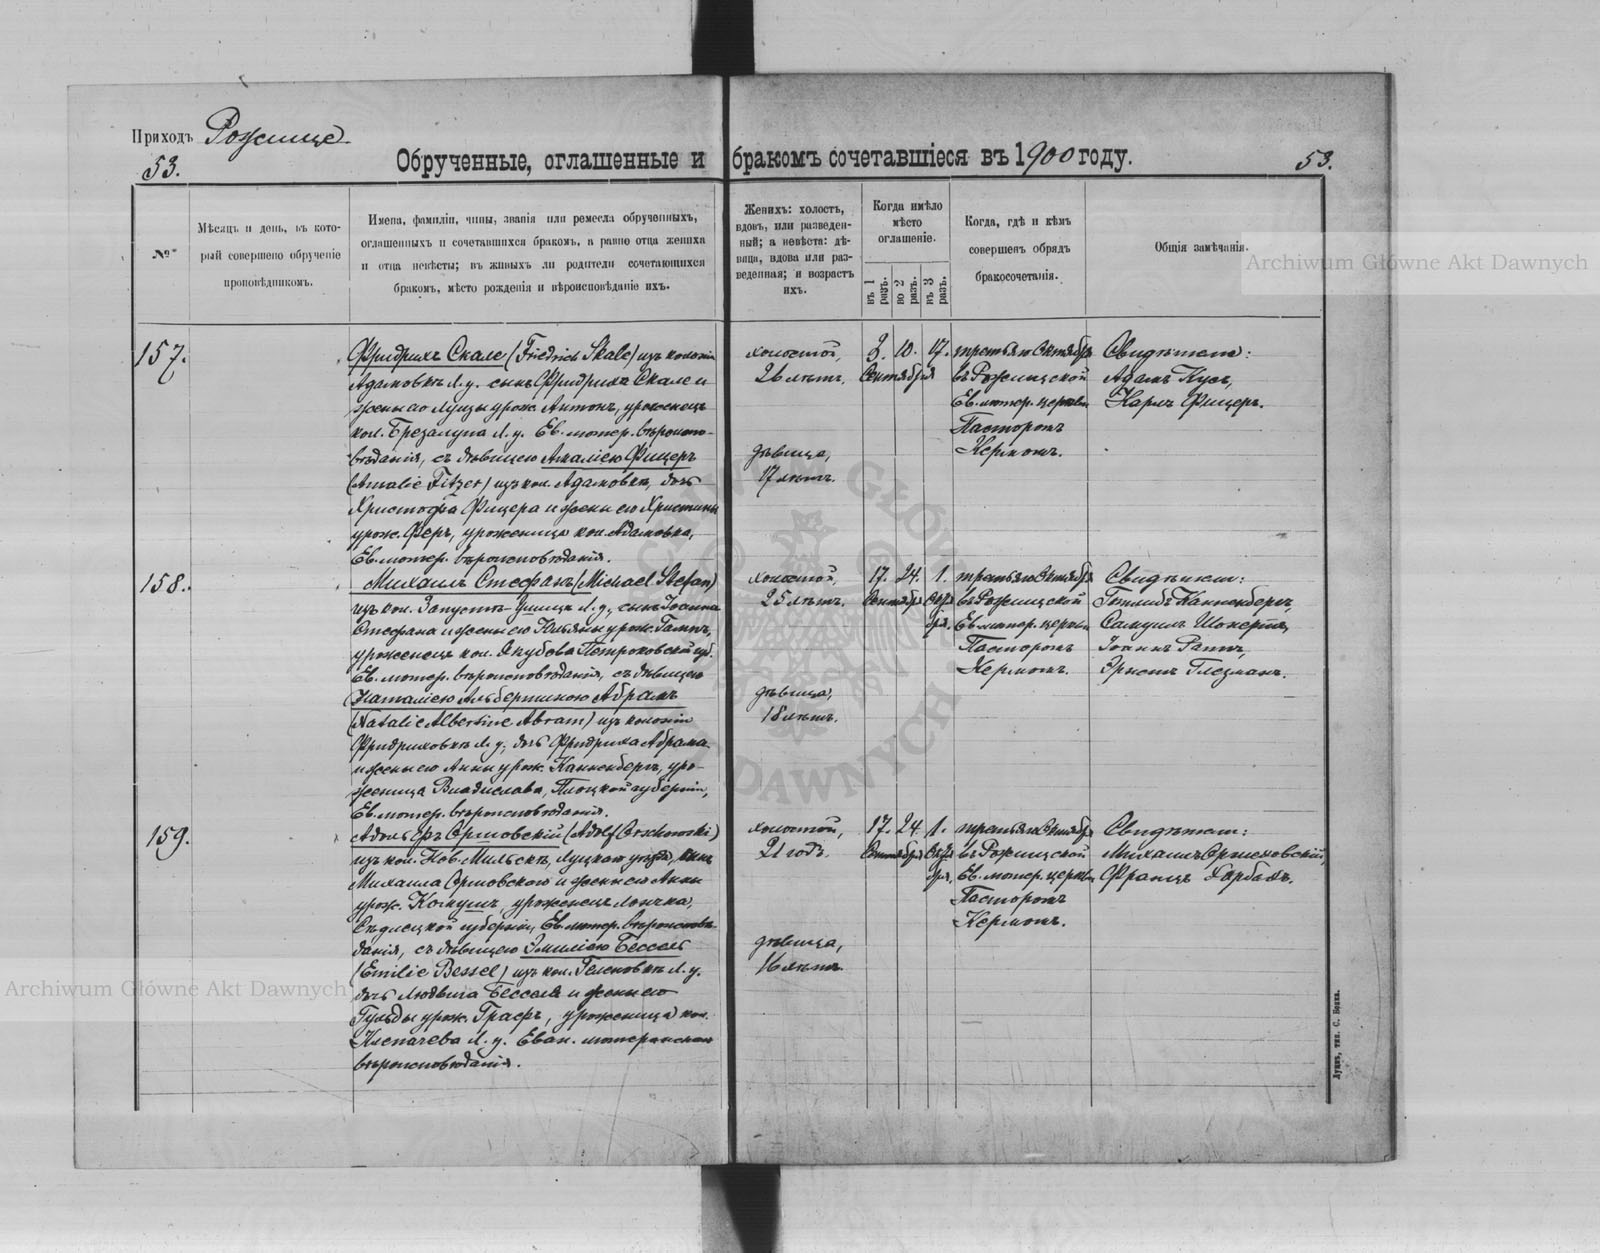 Приходъ Рожище
53.
Обрученные, оглашенные и бракомъ сочетавшіеся въ 1900 году.
53.
№№
Мѣсяцъ и день, въ который совершено обрученіе проповѣдникомъ.
Имена, фамиліи, чины, званія или ремесла обрученныхъ,
оглашенныхъ и сочетавшихся бракомъ, а равно отца жениха
и отца невѣсты; въ живыхъ ли родители сочетающихся
бракомъ, мѣсто рожденія и вѣроисповѣданіе ихъ.
Женихъ: холостъ,
вдовъ, или разведен-
ный; а невѣста: дѣ-
вица, вдова или раз-
веденная; и возрастъ
ихъ.
Когда имѣло
мѣсто
оглашеніе.
въ 1 разъ.
во 2 разъ.
въ 3 разъ.
Когда, гдѣ и кѣмъ
совершенъ обрядъ
бракосочетанія.
Общія замѣчанія.
Archiwum Główne Akt Dawnych
157.
Фридрихъ Скале (Friedrich Skale) изъ колоніи
Адамовкѣ Л. у. сынъ Фридриха Скале и
жены его Луизы урож. Антонъ, уроженецъ
кол. Брезалупа Л. у. Ев. лютер. вѣроиспо-
вѣданія, съ дѣвицею Амаліею Фицеръ
(Amalie Fitzer) изъ кол. Адамовкѣ, дочь
Христофа Фицера и жены его Христины
урож. Феръ, уроженица кол. Адамовка,
Ев. лютер. вѣроисповѣданія.
холостой,
26 лѣтъ.
дѣвица,
17 лѣтъ.
3. 10. 17.
Сентября
третьяго Октября
въ Рожищской
Ев. лютер. церкви
Пасторомъ
Кермомъ.
Свидѣтели:
Адамъ Кусъ,
Карлъ Фицеръ.
158.
Михаилъ Стефанъ (Michael Stefan)
изъ кол. Запустъ-Улища Л. у., сынъ Іоанна
Стефана и жены его Юльяны урож. Гампъ,
уроженецъ кол. Якубова Петроковской губ.
Ев. лютер. вѣроисповѣданія, съ дѣвицею
Наталіею Альбертиною Абрамъ
(Natalie Albertine Abram) изъ колоніи
Фридриховкѣ Л. у., дочь Фридриха Абрама
и жены его Анны урож. Канненбергъ, уро-
женица Владислава, Плоцкой губерніи,
Ев. лютер. вѣроисповѣданія.
холостой,
25 лѣтъ.
дѣвица,
18 лѣтъ.
17. 24. 1.
Сентября Октя
бря.
третьяго Октября
въ Рожищской
Ев. лютер. церкви
Пасторомъ
Кермомъ.
Свидѣтели:
Готлибъ Канненбергъ,
Самуилъ Шокертъ,
Іоаннъ Раттъ,
Эрнстъ Глезманъ.
159.
Адольфъ Оршовскій (Adolf Orschowski)
изъ кол. Нов. Мильскъ, Луцкаго уѣзда, сынъ
Михаила Оршовскаго и жены его Анны
урож. Комушъ, уроженецъ Лончка,
Сѣдлецкой губерніи, Ев. лютер. вѣроисповѣ-
данія, съ дѣвицею Эмиліею Бессель
(Emilie Bessel) изъ кол. Геленовкѣ Л. у.
дочь Людвига Бесселя и жены его
Гульды урож. Графъ, уроженица кол.
Клепачева Л. у. Еван. лютеранскаго
вѣроисповѣданія.
холостой,
21 годъ.
дѣвица,
16 лѣтъ.
17. 24. 1.
Сентября Октя
бря.
третьяго Октября
въ Рожищской
Ев. лютер. церкви
Пасторомъ
Кермомъ.
Свидѣтели:
Михаилъ Оршеховскій,
Францъ Харбахъ.
Archiwum Główne Akt Dawnych
ARCHIWUM GŁÓWNE AKT DAWNYCH
Луцкъ, тип. С. Бокка.